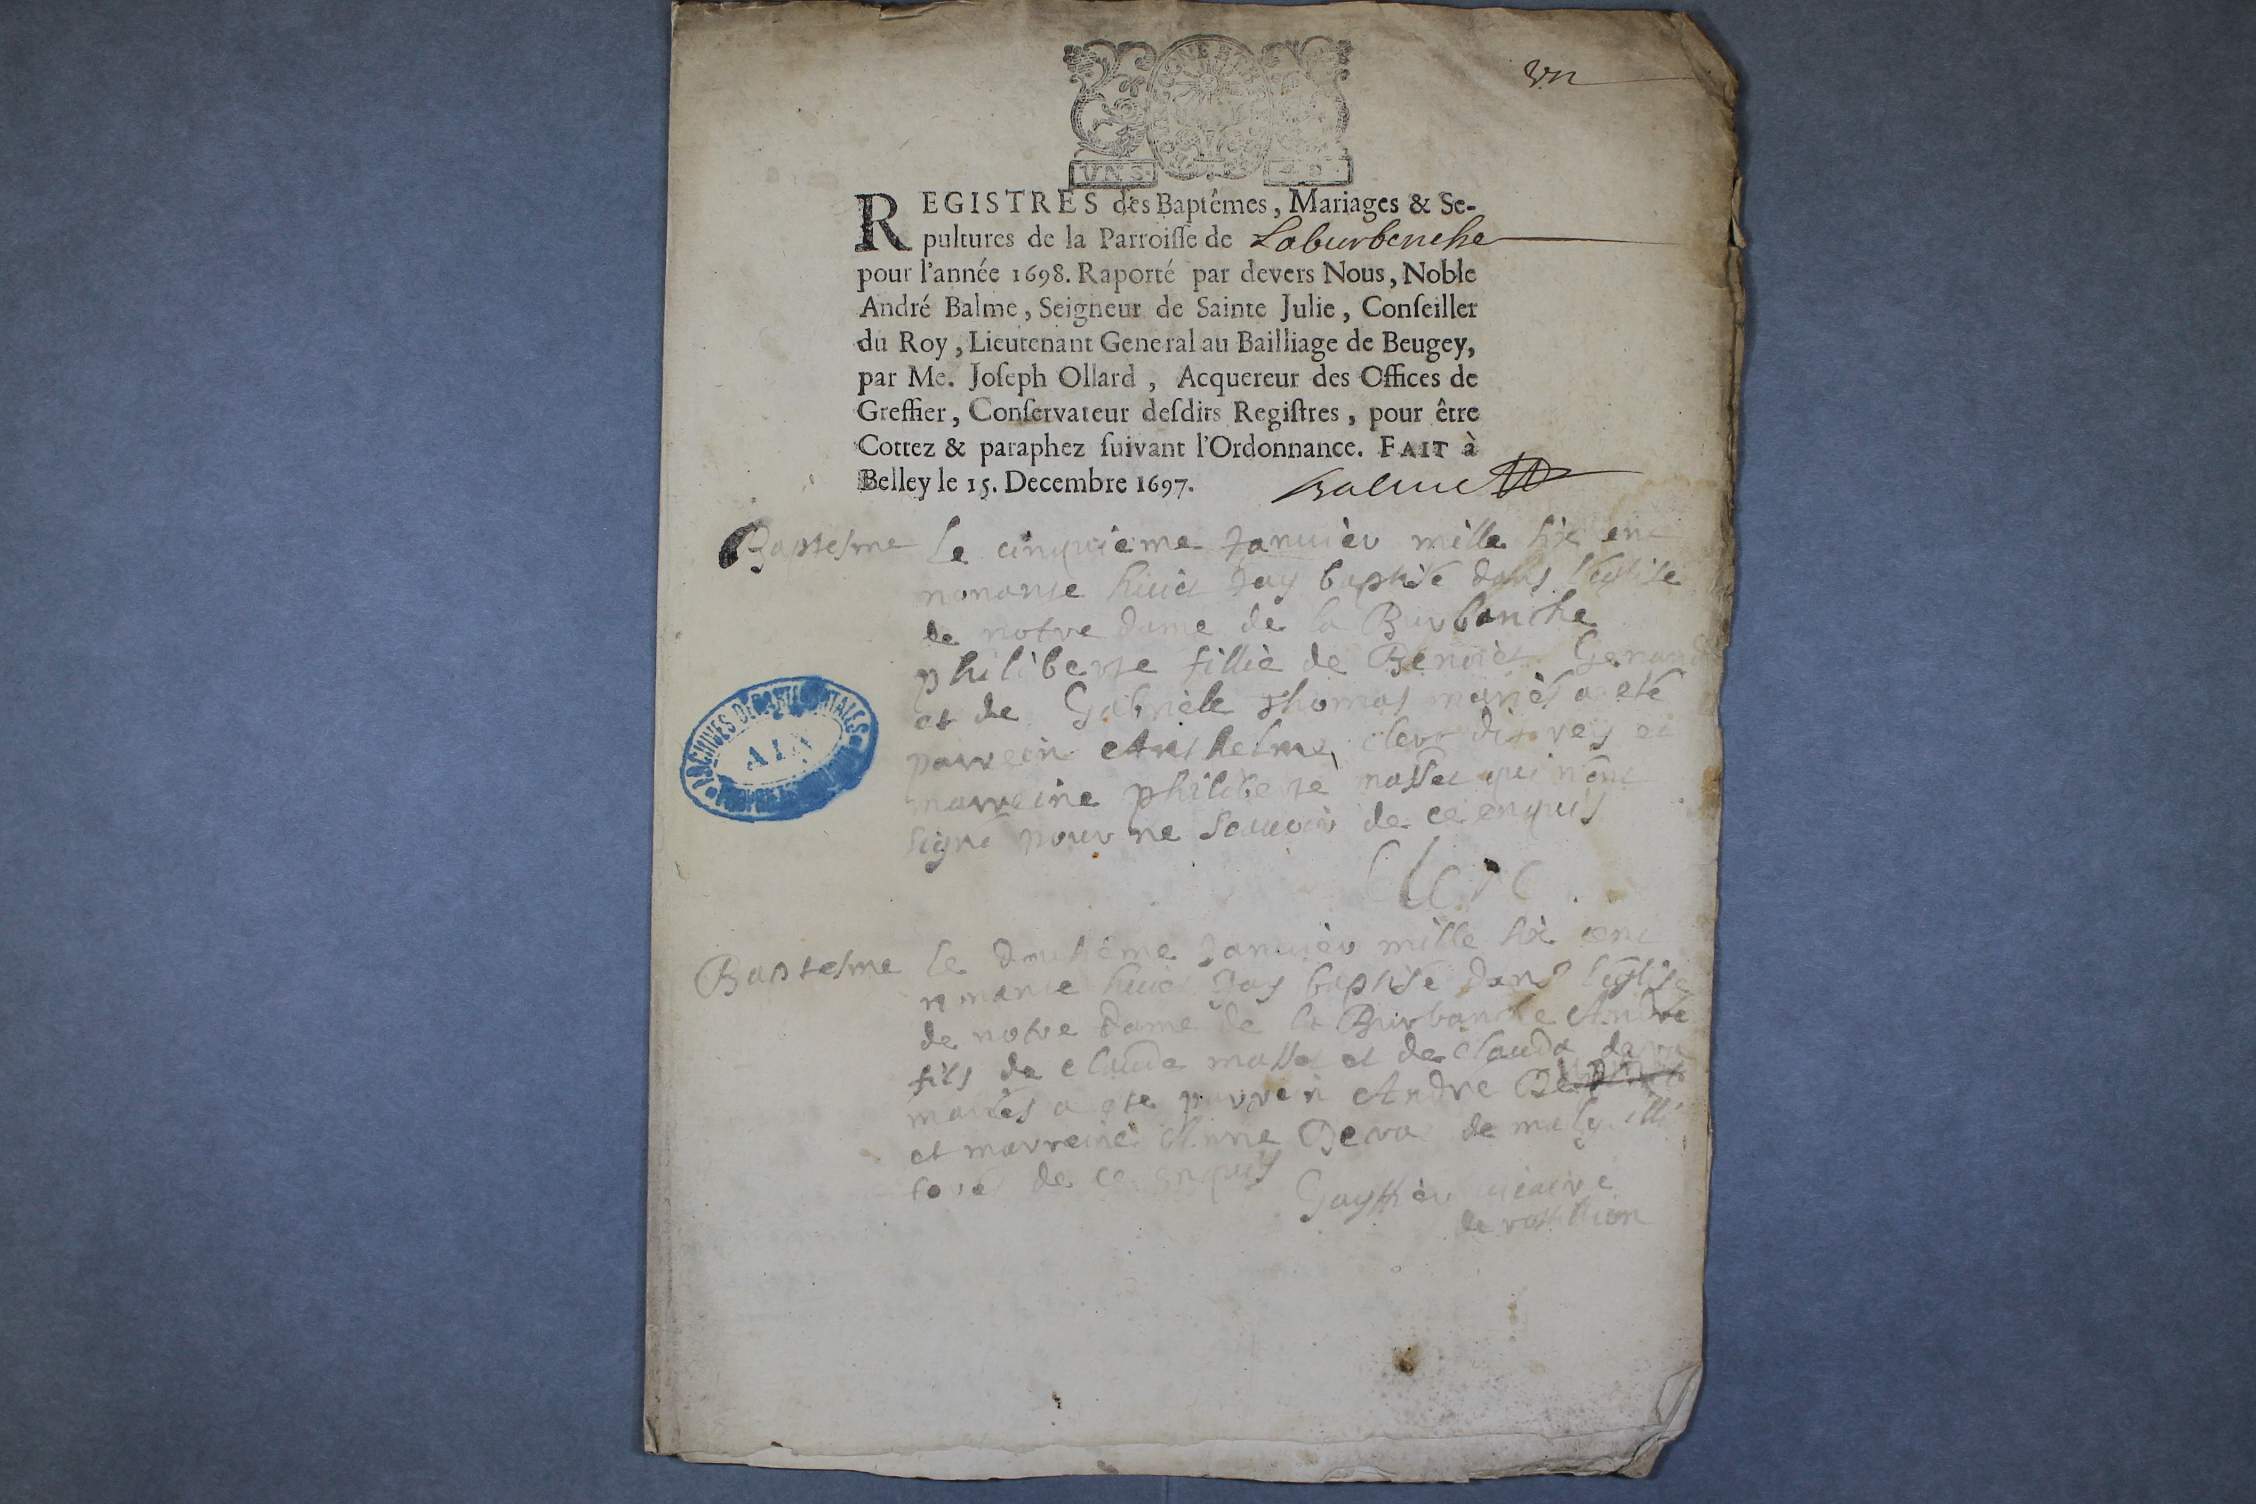 vn
VN S.
REGISTRES des Baptêmes, Mariages & Se-
pultures de la Parroisse de Laburbenche
pour l'année 1698. Raporté par devers Nous, Noble
André Balme, Seigneur de Sainte Julie, Conseiller
du Roy, Lieutenant General au Bailliage de Beugey,
par Me. Joseph Ollard, Acquereur des Offices de
Greffier, Conservateur desdits Registres, pour être
Cottez & paraphez suivant l'Ordonnance. FAIT à
Belley le 15. Decembre 1697. Balme
Baptesme le cinquieme Janvièr mille six cent
nonante huict Jay baptisé dans l'eglise
de notre dame de la Burbanche
philiberte fillie de Benoict
et de Gabrièle Thomas mariés a eté
parrein Anthelme clerc et
marreine philiberte masset qui n'ont
signé pour ne scavoir de ce enquis
Clerc
Baptesme le douzième Janvièr mille six cent
nonante huict Jay baptisé dans l'eglise
de notre dame de la Burbanche André
fils de claude masset et de clauda
mariés a ete parrein André
et marreine Anne Deva de
de ce enquis
vicaire
de rossillion
ARCHIVES DEPARTEMENTALES
AIN